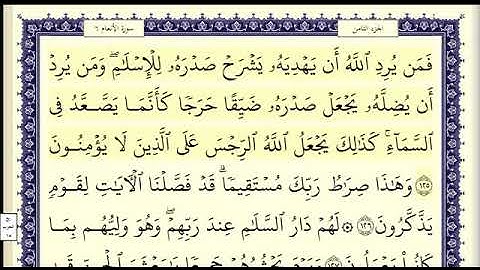 الجزء الثامن
سورة الأنعام ٦
فَمَن يُرِدِ ٱللَّهُ أَن يَهْدِيَهُۥ يَشْرَحْ صَدْرَهُۥ لِلْإِسْلَٰمِ ۖ وَمَن يُرِدْ
أَن يُضِلَّهُۥ يَجْعَلْ صَدْرَهُۥ ضَيِّقًا حَرَجًا كَأَنَّمَا يَصَّعَّدُ فِى
ٱلسَّمَآءِ ۚ كَذَٰلِكَ يَجْعَلُ ٱللَّهُ ٱلرِّجْسَ عَلَى ٱلَّذِينَ لَا يُؤْمِنُونَ
١٢٥ وَهَٰذَا صِرَٰطُ رَبِّكَ مُسْتَقِيمًا ۗ قَدْ فَصَّلْنَا ٱلْآيَٰتِ لِقَوْمٍ
يَذَّكَّرُونَ ١٢٦ ۞ لَهُمْ دَارُ ٱلسَّلَٰمِ عِندَ رَبِّهِمْ ۖ وَهُوَ وَلِيُّهُم بِمَا
كَانُوا۟ يَعْمَلُونَ ١٢٧ وَيَوْمَ يَحْشُرُهُمْ جَمِيعًا يَٰمَعْشَرَ ٱلْجِنِّ قَدِ